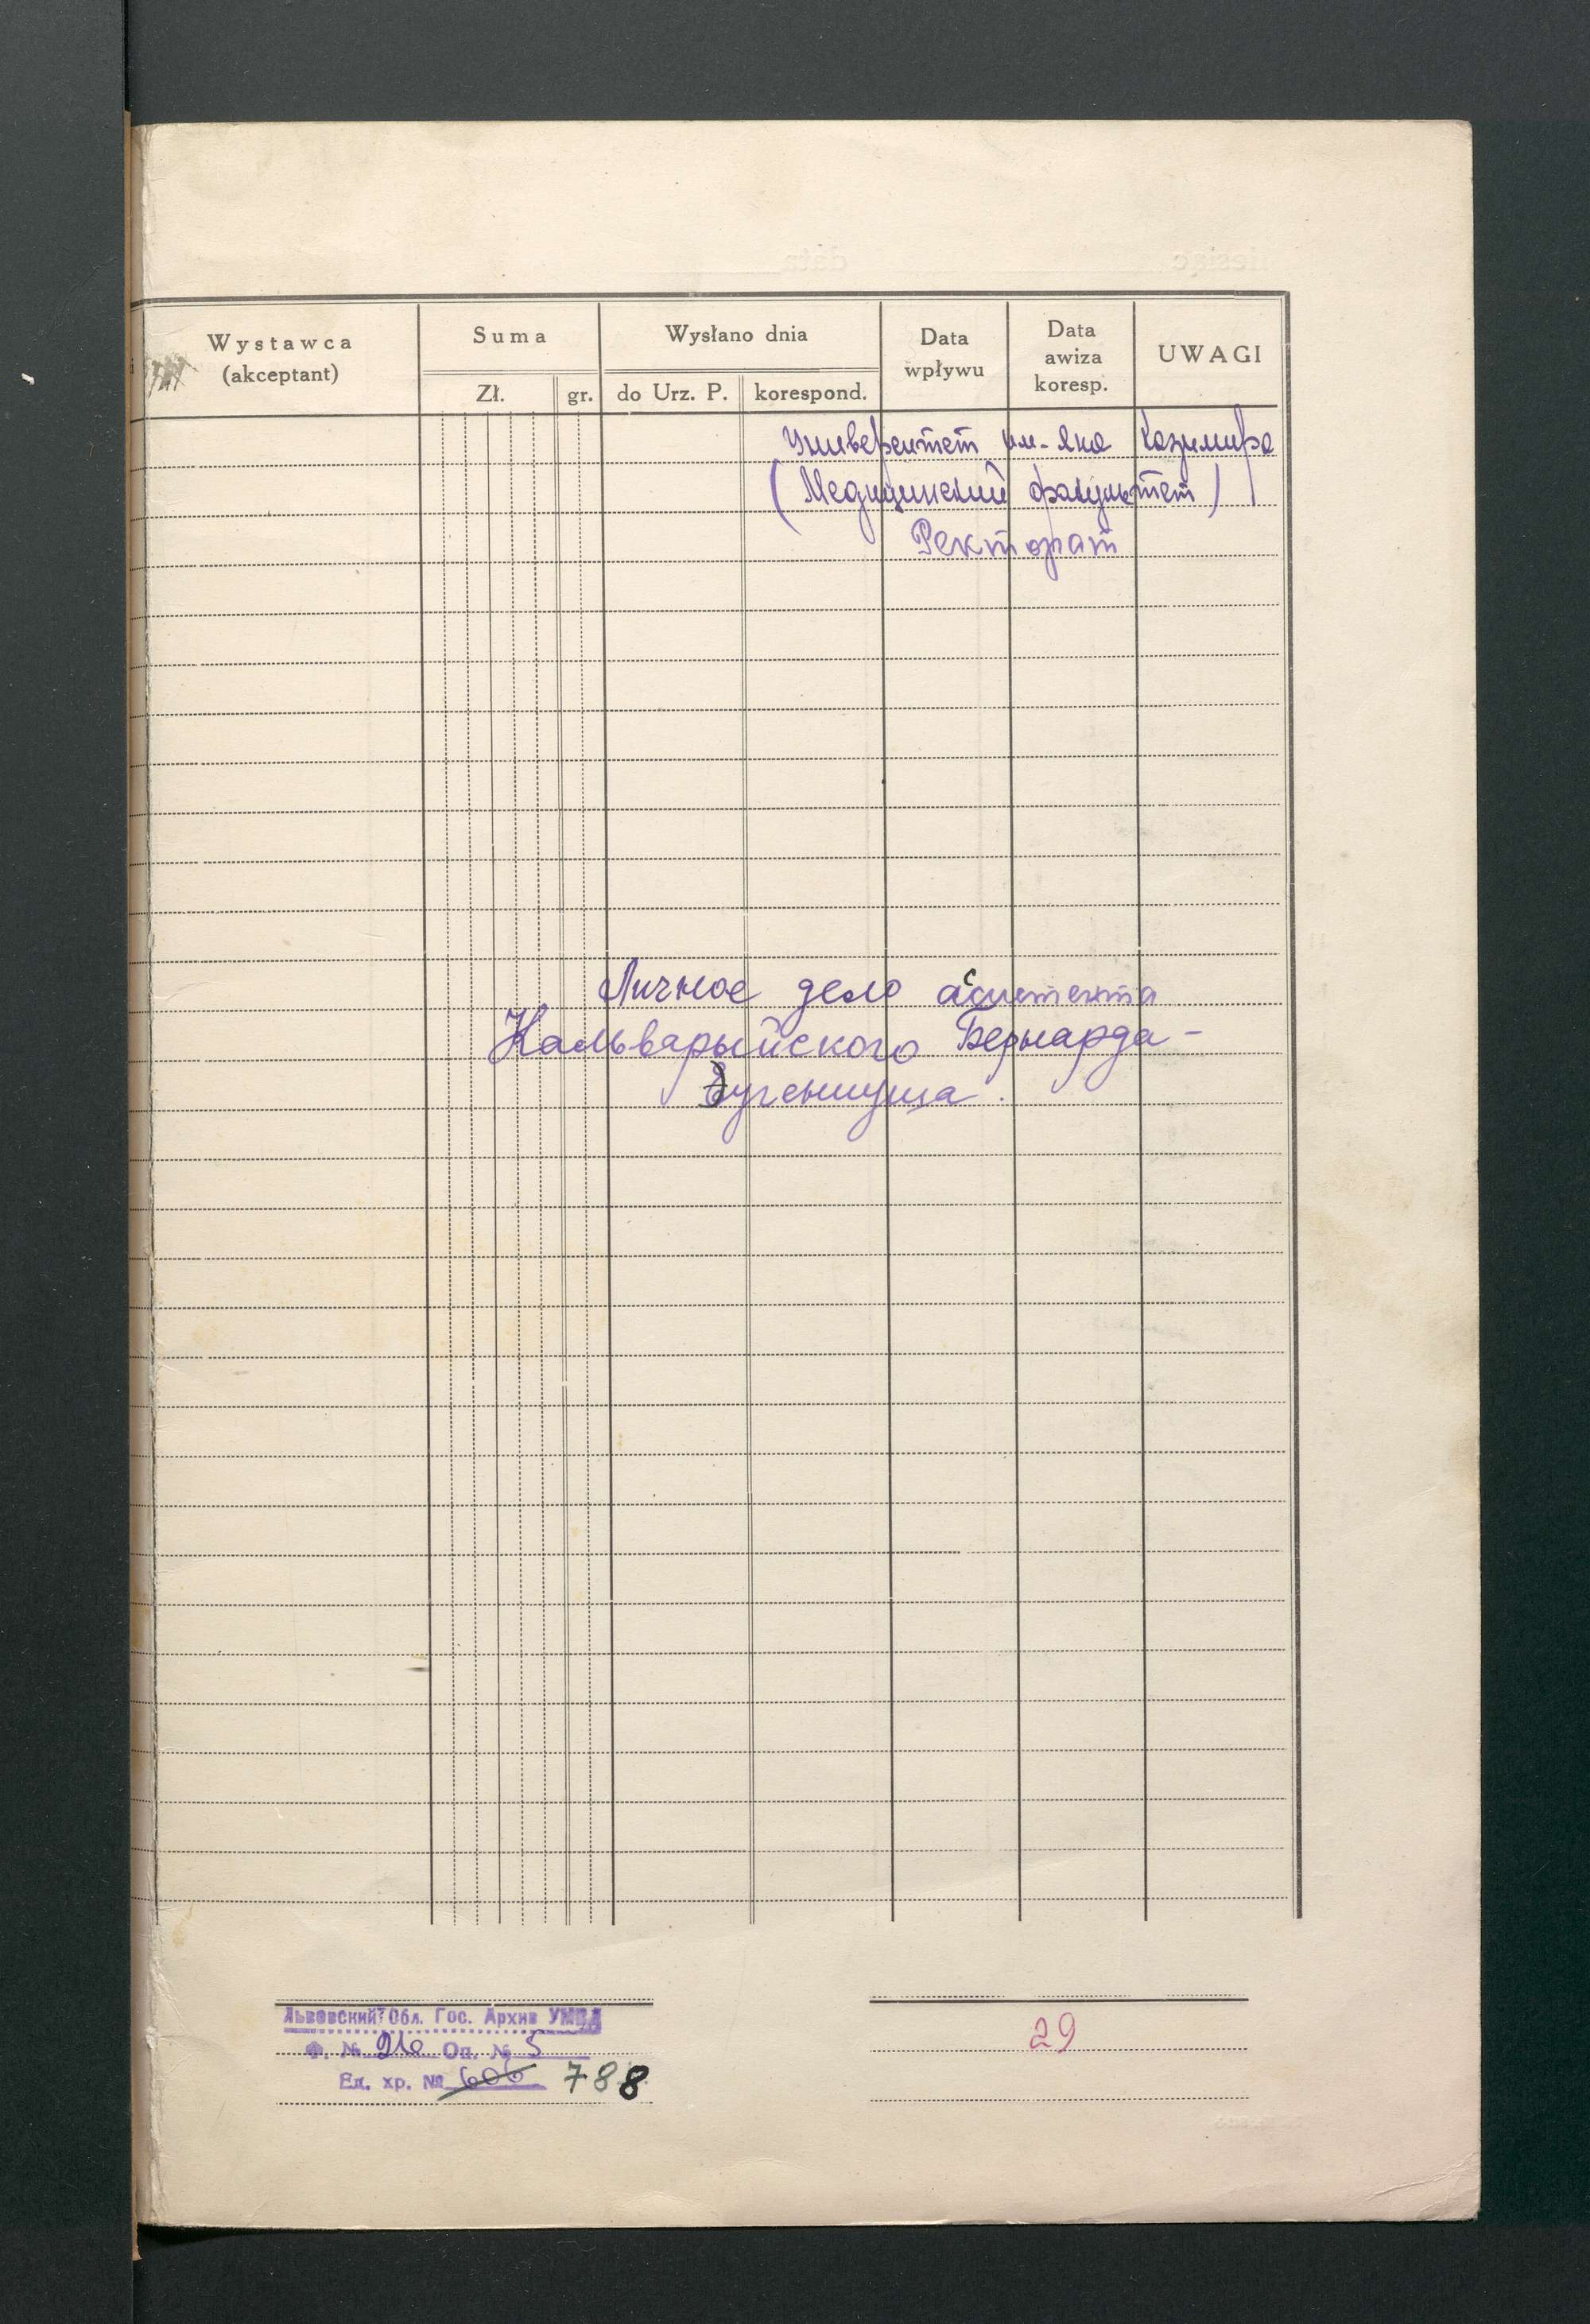 Wystawca
(akceptant)
Suma
Zł.
gr.
Wysłano dnia
do Urz. P.
korespond.
Data
wpływu
Data
awiza
koresp.
UWAGI
Университет им. Яна Казимира
(Медицинский факультет)
Ректорат
Личное дело ассистента
Кальварыйского Бернарда-
Эугениуша.
Львовский Обл. Гос. Архив УМВД
Ф. № 26 Оп. № 5
Ед. хр. № 606 788
29